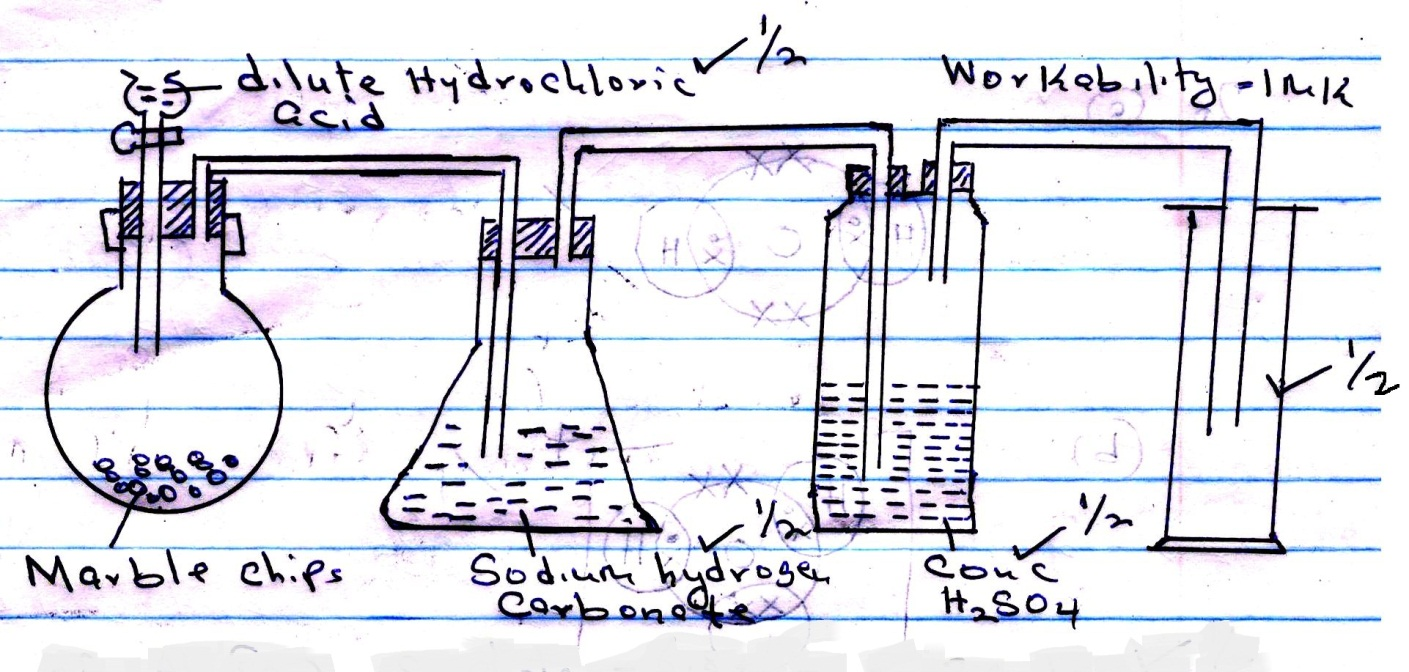 dilute Hydrochloric ✓ 1/2
acid
Workability = 1mk
✓ 1/2
Marble chips
Sodium hydrogen ✓ 1/2
Carbonate
Conc ✓ 1/2
H₂SO₄